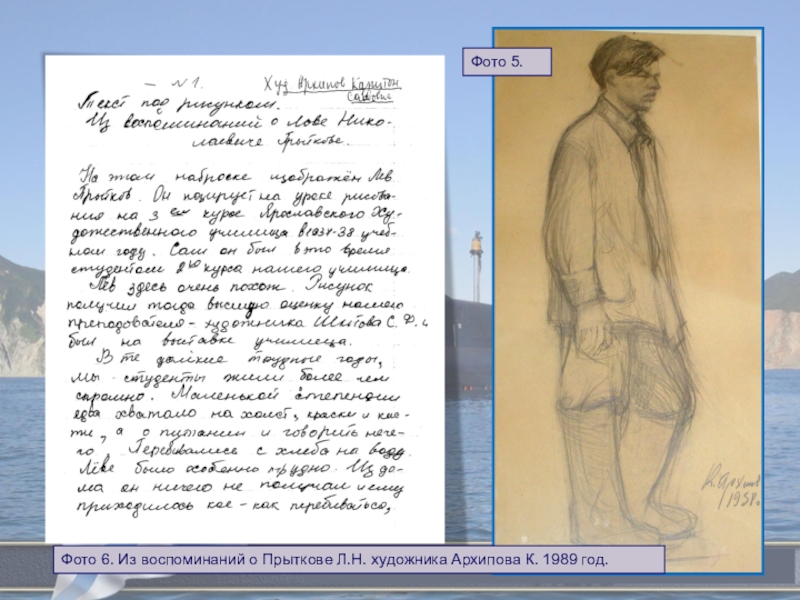 Фото 5.
– №1. Худ Архипов Капитон
Саввович
Текст под рисунком.
Из воспоминаний о Лове Нико-
лаевиче Прыткове.
На этом наброске изображён Лев
Прытков. Он позирует на уроке рисова-
ния на 3 ем курсе Ярославского Ху-
дожественного училища в 1937-38 учеб-
ном году. Сам он был в это время
студентом 2го курса нашего училища.
Лев здесь очень похож. Рисунок
получил тогда высшую оценку нашего
преподователя - художника Шитова С.Ф. и
был на выставке училища.
В те далёкие трудные годы,
мы - студенты жили более чем
скромно. Маленькой степендии
едва хватало на холст, краски и кис-
ти, а о питании и говорить нече-
го. Перебивались с хлеба на воду.
Лёве было особенно трудно. Из до-
ма он ничего не получал и ему
приходилось кое-как перебиваться,
К. Архипов
1938г.
Фото 6. Из воспоминаний о Прыткове Л.Н. художника Архипова К. 1989 год.